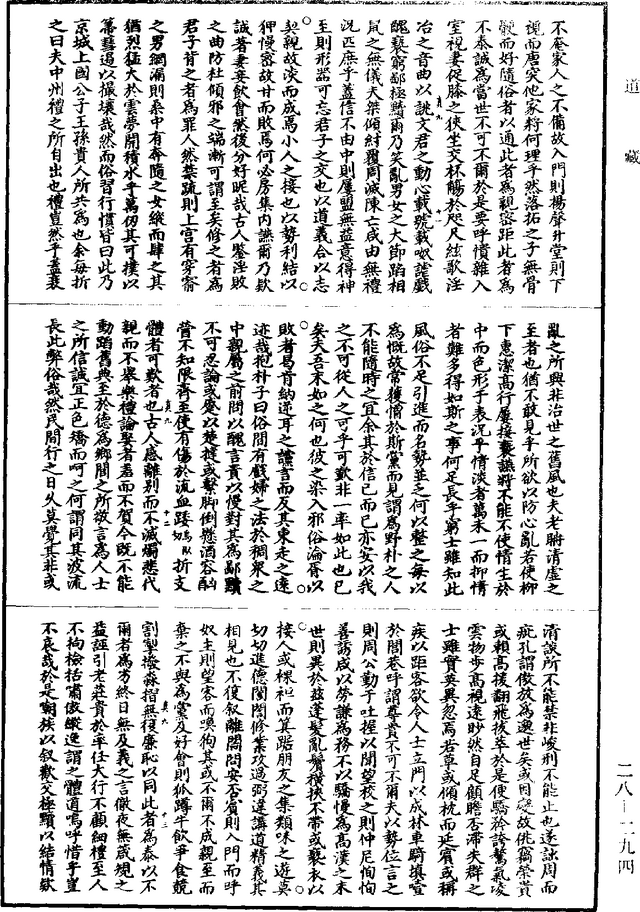 道藏
不奄家人之不備故入門則揚聲升堂則下
視而唐突他家將何理乎然落拓之子無骨
骾而好隨俗者以通此者為親密距此者為
不恭誠為當世不可不爾於是要呼憒雜入
室視妻促膝之狹坐交杯觴於咫尺絃歌淫
冶之音曲以誂文君之動心載號載呶謔戲
醜褻窮鄙極黷爾乃笑亂男女之大節蹈相
鼠之無儀夫桀傾紂覆周滅陳亡咸由無禮
況匹庶乎蓋信不由中則屢盟無益意得神
至則形器可忘君子之交也以道義合以志
契親故淡而成焉小人之接也以勢利結以
狎慢密故甘而敗焉何必房集內讌爾乃款
誠著妻妾飲會然後分好昵哉古人鑒淫敗
之曲防杜傾邪之端漸可謂至矣修之者為
君子背之者為罪人然禁疏則上宮有穿窬
之男網漏則桑中有奔隨之女縱而肆之其
猶烈猛火於雲夢開積水乎萬仞其可撲以
箒篲遏以撮壤哉然而俗習行慣皆曰此乃
京城上國公子王孫貴人所共為也余每折
之曰夫中州禮之所自出也禮豈然乎蓋衰
亂之所興非治世之舊風也夫老聃清虛之
至者也猶不敢見乎所欲以防心亂若使柳
下惠潔高行屢接褻讌將不能不使情生於
中而色形于表況乎情淡者萬未一而抑情
者難多得如斯之事何足長乎窮士雖知此
風俗不足引進而名勢並乏何以整之每以
為慨故常獲憎於斯黨而見謂為野朴之人
不能隨時之宜余其於信己而已亦安以我
之不可從人之可乎可歎非一率如此也已
矣夫吾未如之何也彼之染入邪俗淪胥以
敗者曷肯納逆耳之讜言而反其東走之遠
迹哉抱朴子曰俗間有戲婦之法於稠眾之
中親屬之前問以醜言責以慢對其為鄙黷
不可忍論或蹙以楚撻或繫腳倒懸酒客酗
醟不知限齊至使有傷於流血踒折支
體者可歎者也古人感離別而不滅燭悲代
親而不舉樂禮論娶者羞而不賀今既不能
動蹈舊典至於德為鄉閭之所敬言為人士
之所信誠宜正色矯而呵之何謂同其波流
長此弊俗哉然民間行之日久莫覺其非或
清談所不能禁非峻刑不能止也遂詘周而
疵孔謂傲放為邈世矣或因變故佻竊榮貴
或賴高援翻飛拔萃於是便驕矜誇驁氣凌
雲物步高視遠眇然自足顧瞻否滯失群之
士雖實英異忽焉若草或傾枕而延賓或稱
疾以距客欲令人士立門以成林車騎填噎
於閭巷呼謂尊貴不可不爾夫以勢位言之
則周公勤于吐握以聞望校之則仲尼恂恂
善誘咸以勞謙為務不以驕慢為高漢之末
世則異於茲蓬髮亂鬢橫挾不帶或褻衣以
接人或裸袒而箕踞朋友之集類味之遊莫
切切進德誾誾修業攻過弼違講道精義其
相見也不復敘離闊問安否賓則入門而呼
奴主則望客而喚狗其或不爾不成親至而
棄之不與為黨及好會則狐蹲牛飲爭食競
割掣撥淼摺無復廉恥以同此者為泰以不
爾者為劣終日無及義之言徹夜無箴規之
益誣引老莊貴於率任大行不顧細禮至人
不拘檢括嘯傲縱逸謂之體道嗚呼惜乎豈
不哀哉於是嘲族以敘歡交極黷以結情款
二八—二九四